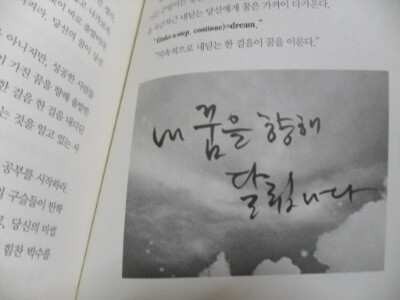 아니지만, 성공한 사람들
가진 꿈을 향해 출발한
한 걸음 한 걸음 내디딘
는 것을 알고 있는 사
공부를 시작하라.
구슬들이 반짝
당신의 마법
힘찬 박수를
내딛는 당신에게 꿈은 가까이 다가온다.
"(take a step, continue)=dream."
"지속적으로 내딛는 한 걸음이 꿈을 이룬다."
내 꿈을 향해
달립니다